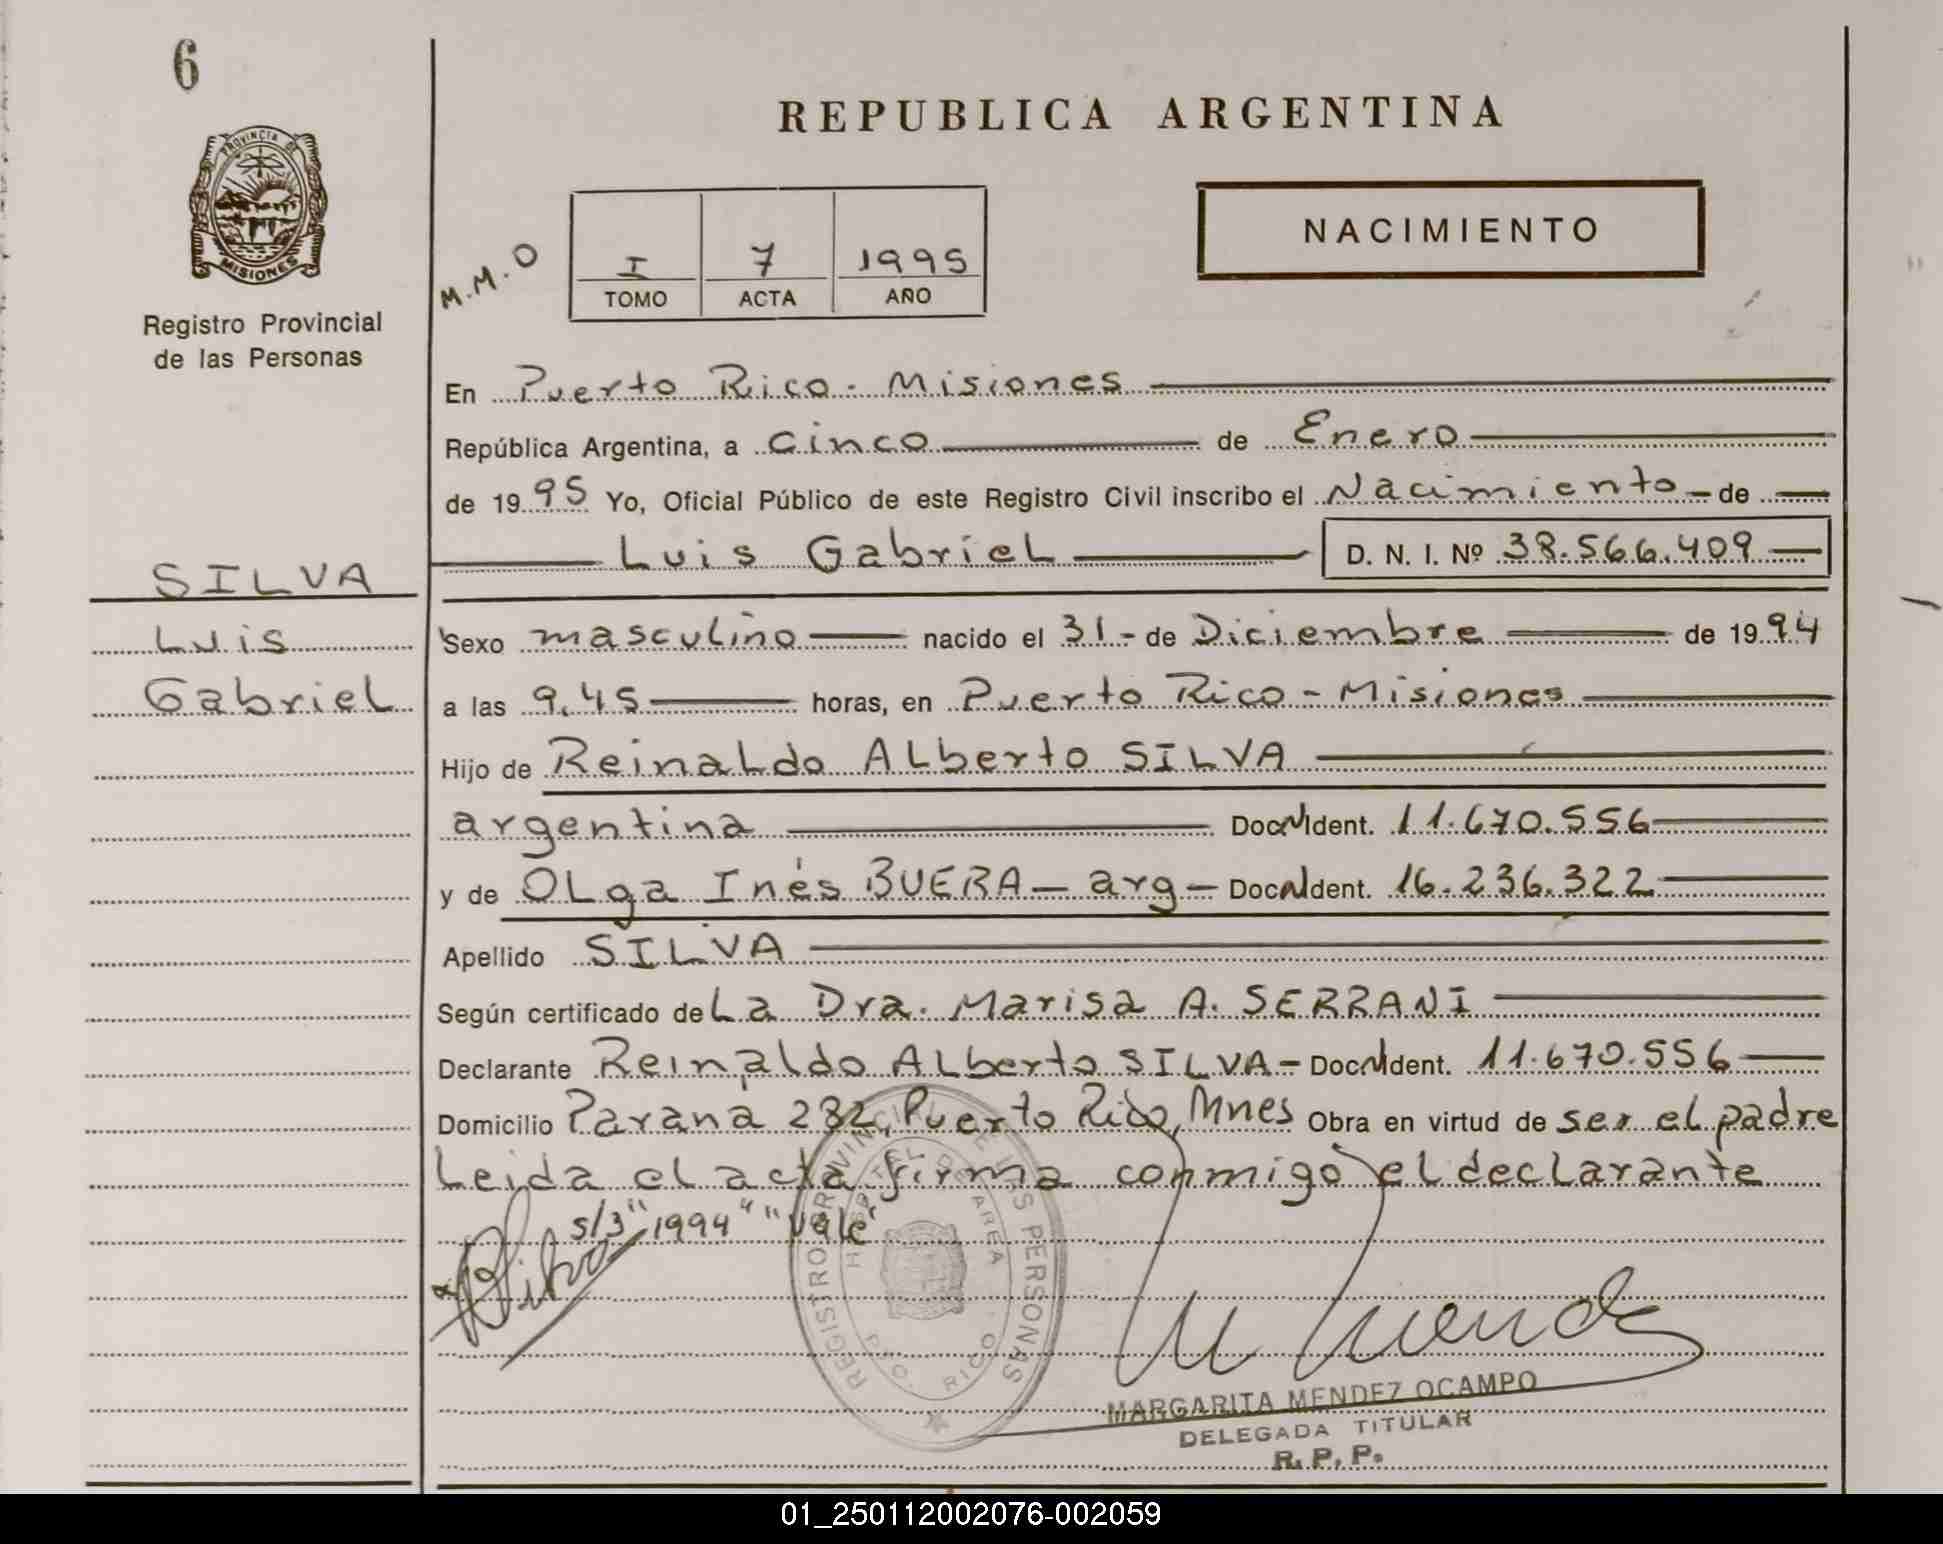 6
PROVINCIA DE
MISIONES
Registro Provincial
de las Personas
SILVA
Luis
Gabriel
REPUBLICA ARGENTINA
M.M.O
I 7 1995
TOMO ACTA AÑO
NACIMIENTO
En Puerto Rico - Misiones
República Argentina, a cinco de Enero
de 1995 Yo, Oficial Público de este Registro Civil inscribo el Nacimiento - de
Luis Gabriel D. N. I. Nº 38.566.409
Sexo masculino nacido el 31 - de Diciembre de 1994
a las 9,45 horas, en Puerto Rico - Misiones
Hijo de Reinaldo Alberto SILVA
argentina Doc. N Ident. 11.670.556
y de Olga Inés BUERA - arg - Doc. N Ident. 16.236.322
Apellido SILVA
Según certificado de La Dra. Marisa A. SERRANI
Declarante Reinaldo Alberto SILVA - Doc. N Ident. 11.670.556
Domicilio Paraná 282, Puerto Rico, Mnes Obra en virtud de ser el padre
Leida el acta firma conmigo el declarante
s/3 "1994" "vale"
REGISTRO PROVINCIAL DE LAS PERSONAS
HOSPITAL DE AREA
PTO. RICO
MARGARITA MENDEZ OCAMPO
DELEGADA TITULAR
R. P. P.
01_250112002076-002059